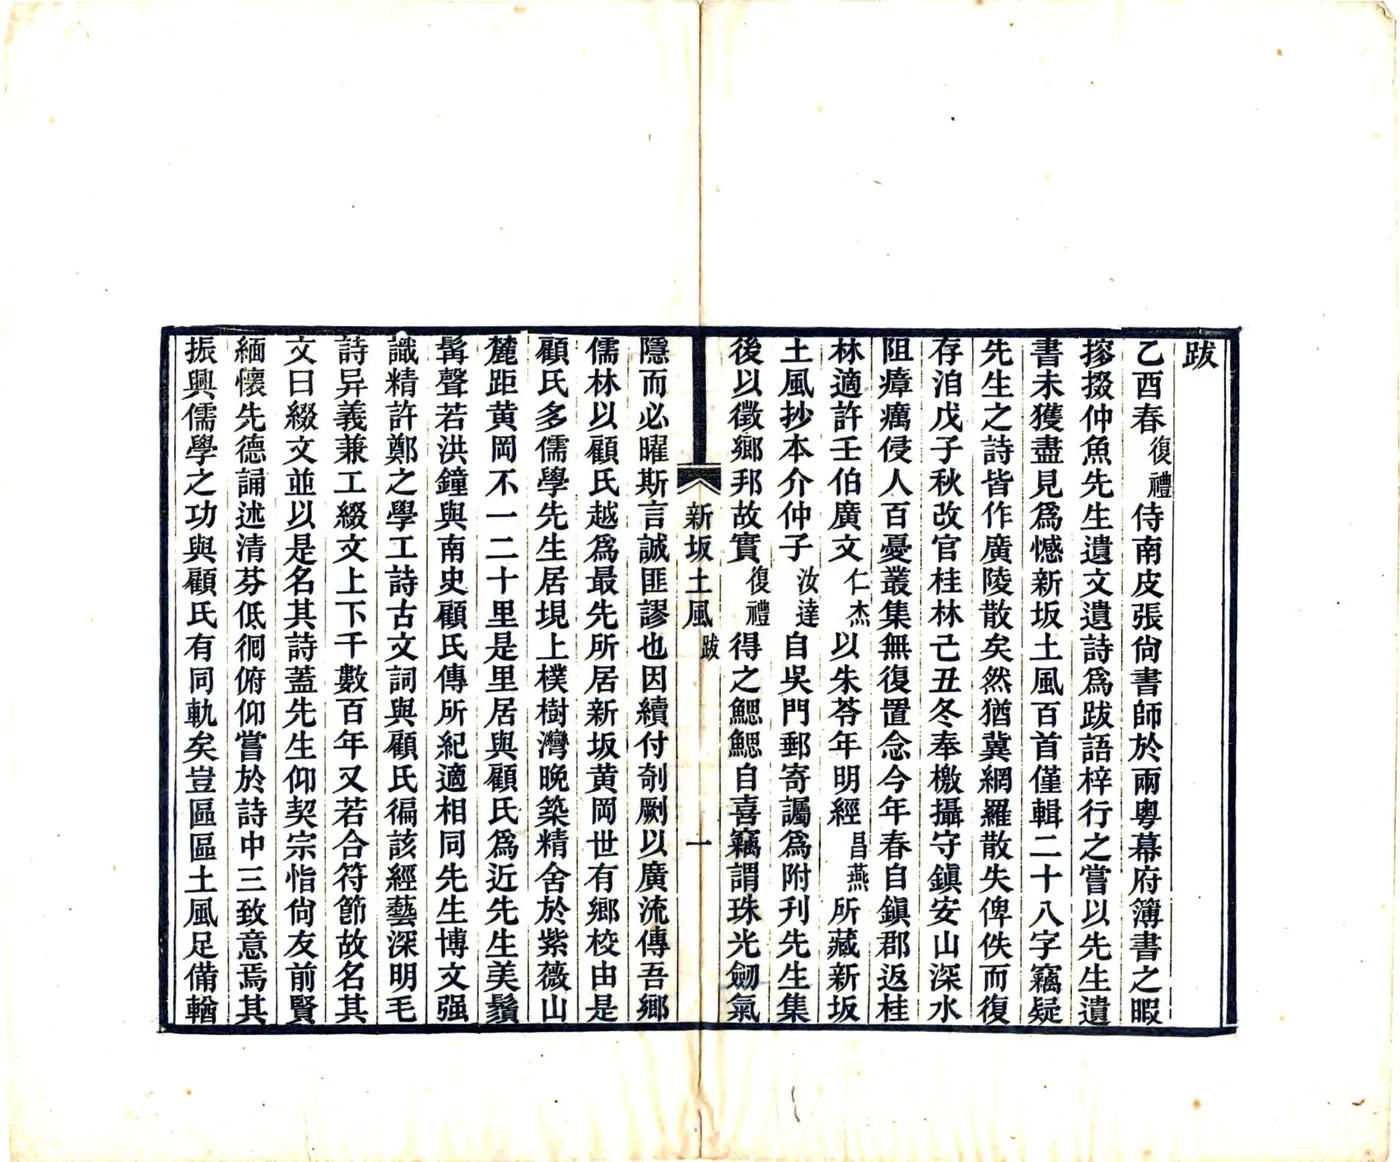 跋
乙酉春復禮侍南皮張尙書師於兩粵幕府簿書之暇
搜掇仲魚先生遺文遺詩爲跋語梓行之嘗以先生遺
書未獲盡見爲憾新坂土風百首僅輯二十八字竊疑
先生之詩皆作廣陵散矣然猶冀網羅散失俾佚而復
存洎戊子秋改官桂林己丑冬奉檄攝守鎭安山深水
阻瘴癘侵人百憂叢集無復置念今年春自鎭郡返桂
林適許壬伯廣文仁杰以朱苓年明經昌燕所藏新坂
土風抄本介仲子汝達自吳門郵寄譸爲附刊先生集
後以徵鄉邦故實復禮得之鰓鰓自喜竊謂珠光劒氣
新坂土風 跋 一
隱而必曜斯言誠匪謬也因續付剞劂以廣流傳吾鄉
儒林以顧氏越爲最先所居新坂黄岡世有鄉校由是
顧氏多儒學先生居垷上樸樹灣晚築精舍於紫薇山
麓距黄岡不一二十里是里居與顧氏爲近先生美鬚
髯聲若洪鐘與南史顧氏傳所紀適相同先生博文强
識精許鄭之學工詩古文詞與顧氏徧該經藝深明毛
詩异義兼工綴文上下千數百年又若合符節故名其
文曰綴文並以是名其詩蓋先生仰契宗恉尙友前賢
緬懷先德誦述清芬低徊俯仰嘗於詩中三致意焉其
振興儒學之功與顧氏有同軌矣豈區區土風足備輶